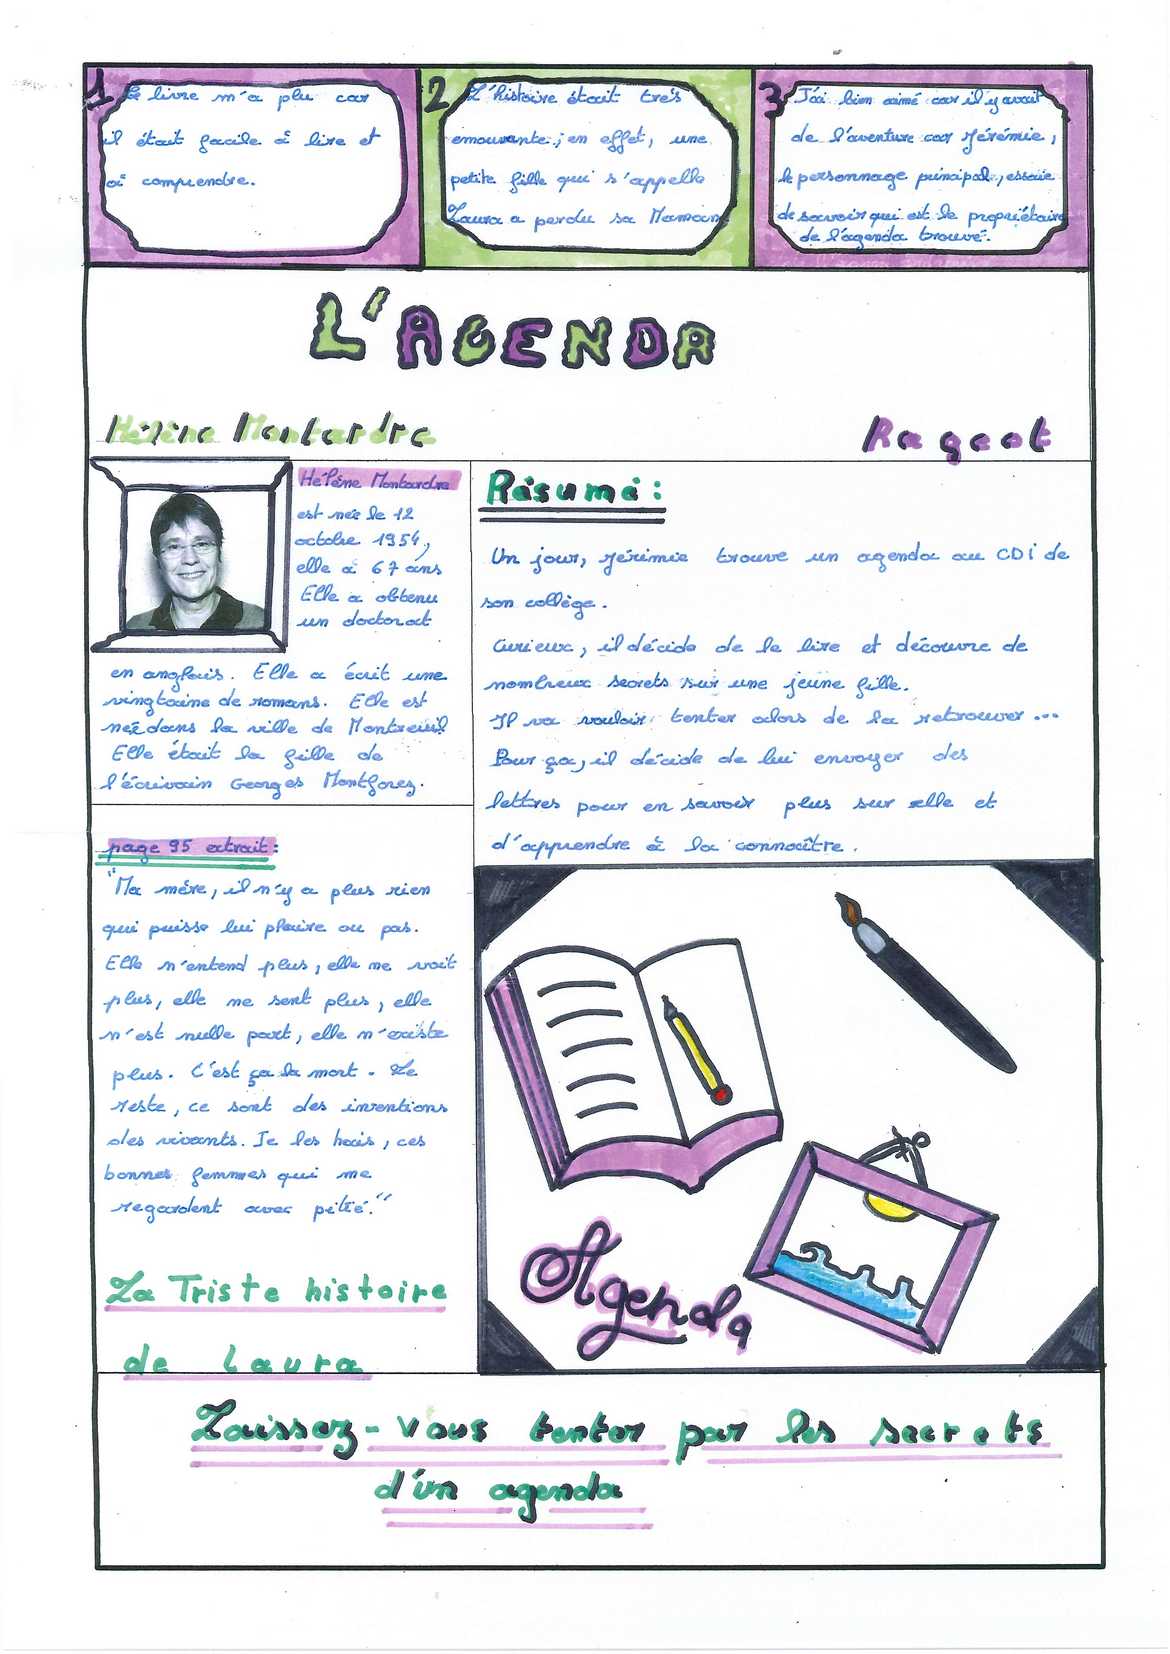 1
Le livre m'a plu car
il était facile à lire et
à comprendre.
2
L'histoire était trés
émouvante ; en effet, une
petite fille qui s'appelle
Laura a perdu sa Maman
3
J'ai bien aimé car il y avait
de l'aventure car Jérémie,
le personnage principal, essaie
de savoir qui est le propriétaire
de l'agenda trouvé.
L'AGENDA
Hélène Montardre
Rageot
Hélène Montardre
est née le 12
octobre 1954,
elle à 67 ans
Elle a obtenu
un doctorat
en anglais. Elle a écrit une
vingtaine de romans. Elle est
née dans la ville de Montreuil
Elle était la fille de
l'écrivain Georges Montforez.
page 95 extrait :
"Ma mére, il n'y a plus rien
qui puisse lui plaire ou pas.
Elle n'entend plus, elle ne voit
plus, elle ne sent plus, elle
n'est nulle part, elle n'existe
plus. C'est ça la mort. Le
reste, ce sont des inventions
des vivants. Je les hais, ces
bonnes femmes qui me
regardent avec pitié."
La Triste histoire
de Laura
Résumé :
Un jour, Jérémie trouve un agenda au CDI de
son collège.
Curieux, il décide de le lire et découvre de
nombreux secrets sur une jeune fille.
Il va vouloir tenter alors de la retrouver ...
Pour ça, il décide de lui envoyer des
lettres pour en savoir plus sur elle et
d'apprendre à la connaître.
Agenda
Laissez-vous tenter par les secrets
d'un agenda